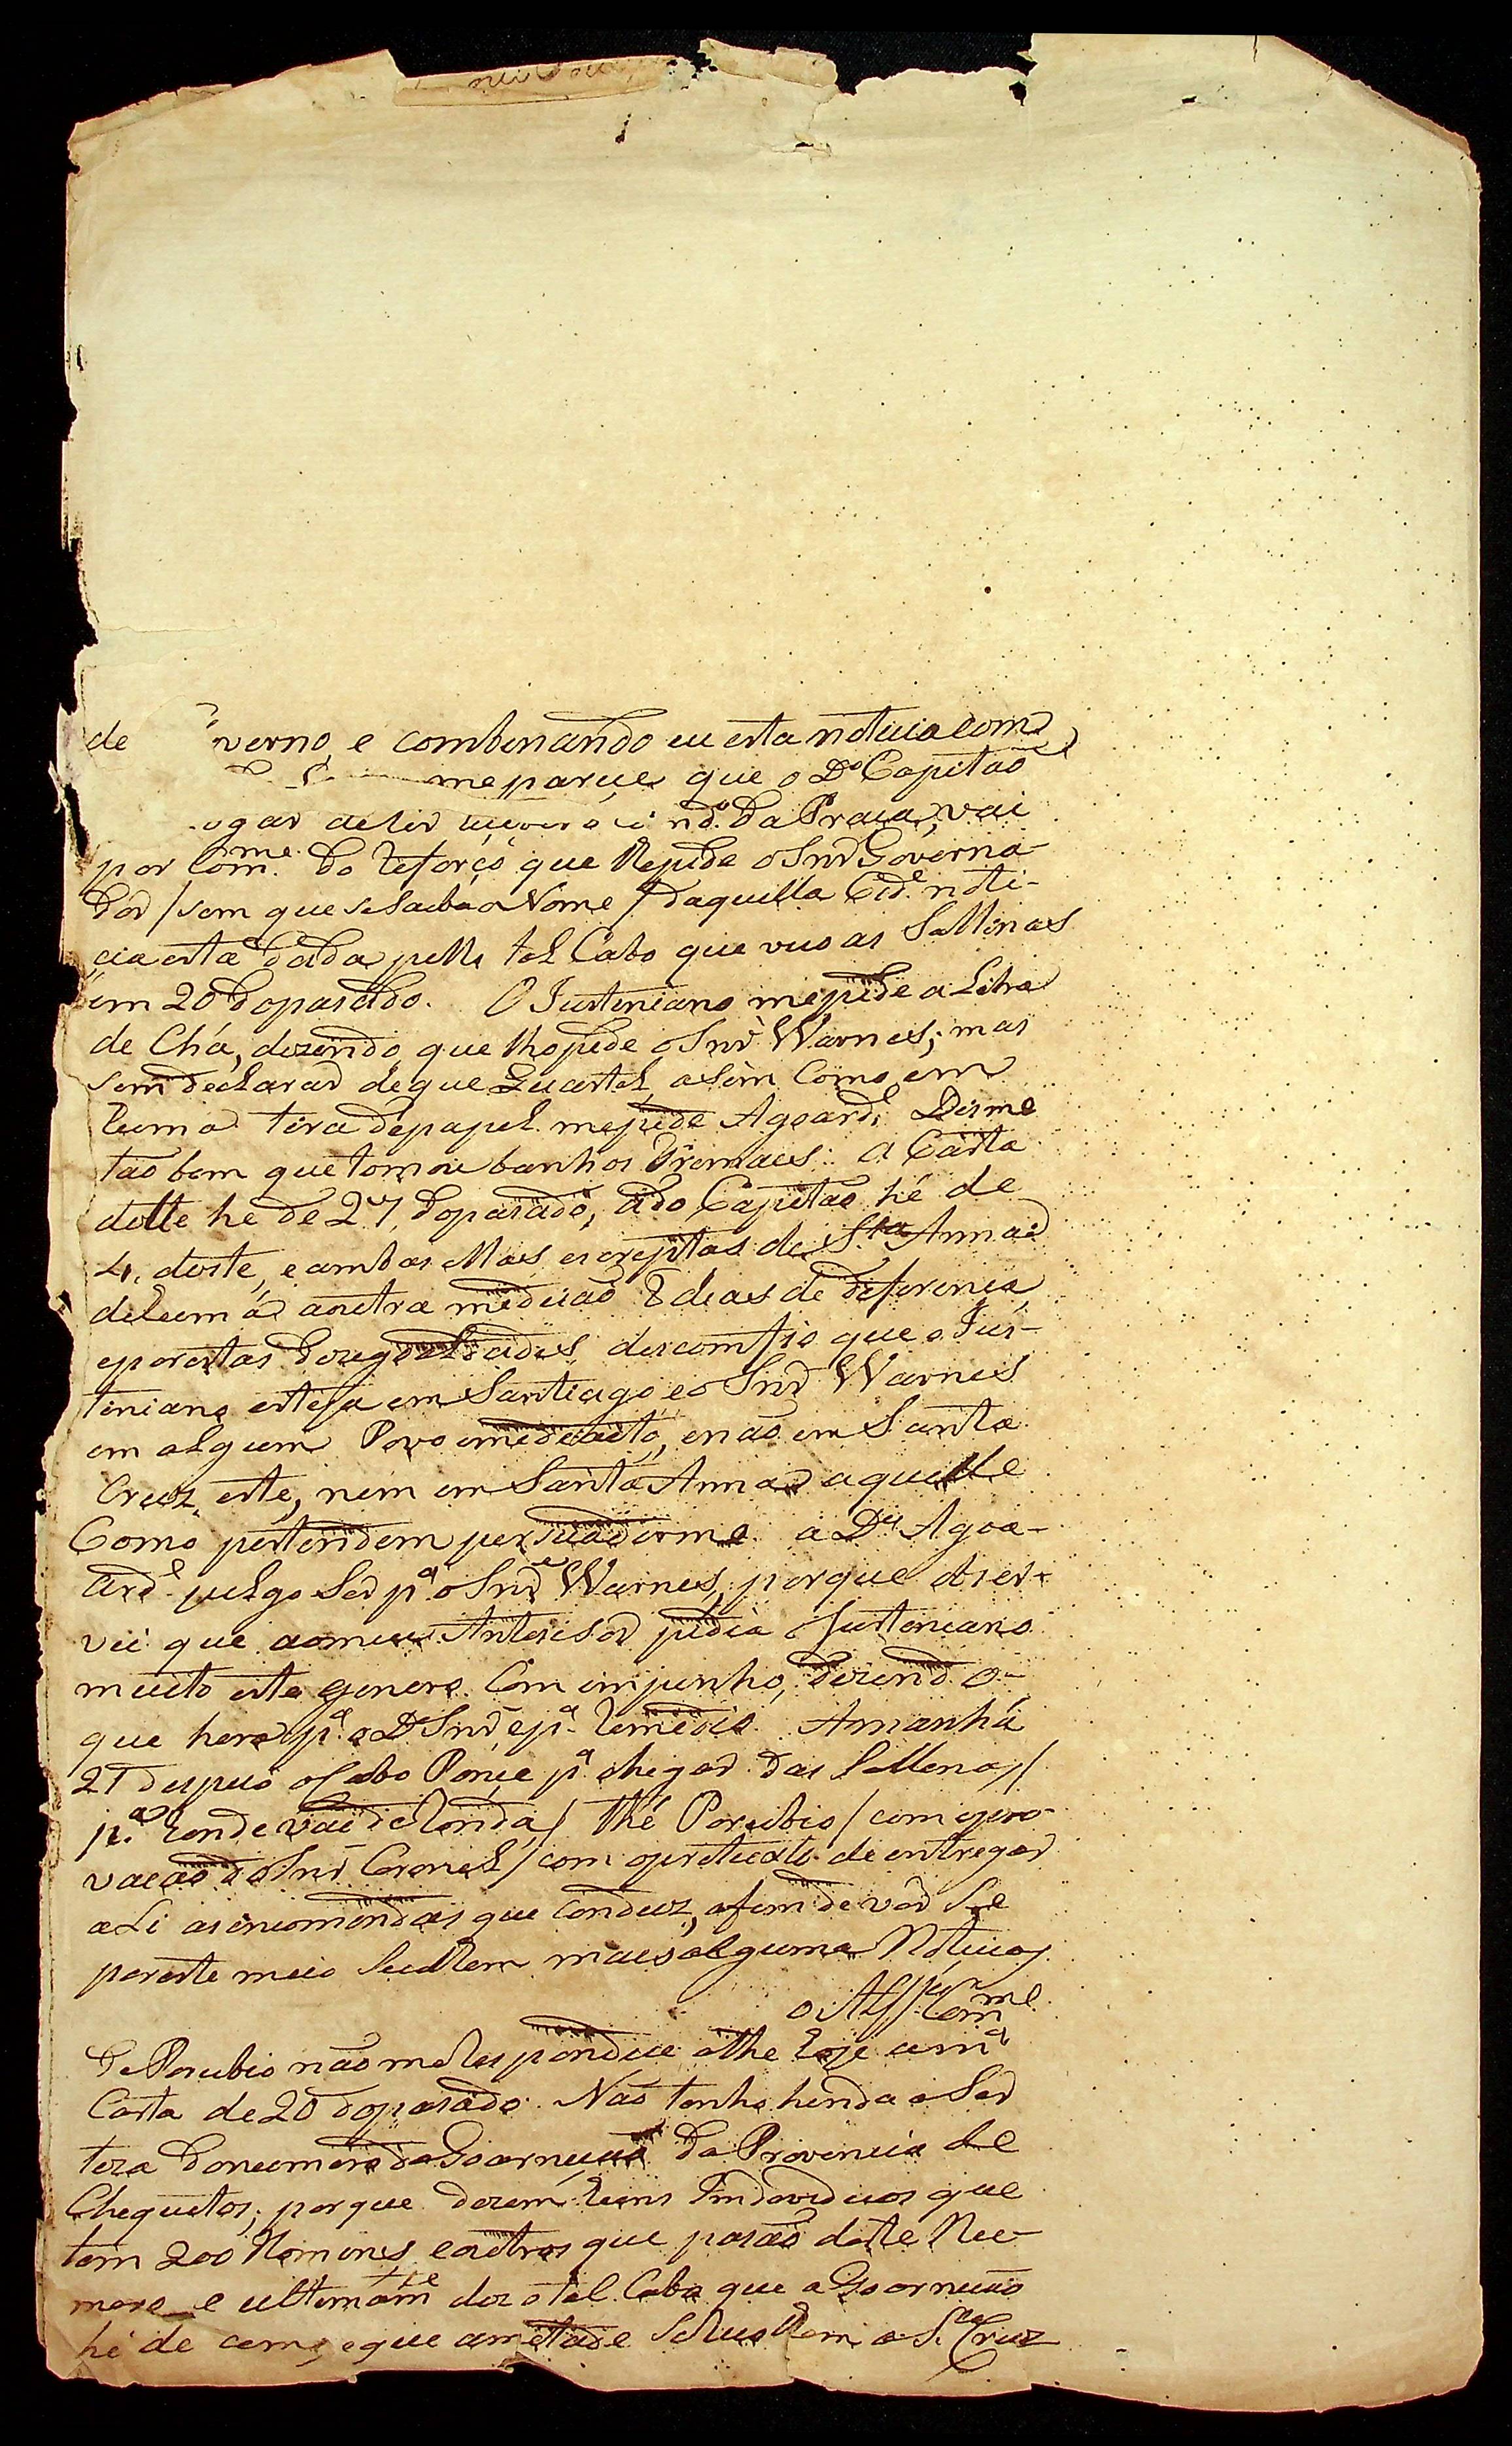 de verno e combinando eu esta noticia com
me parece que o Dº Capitaõ
ogar de ser da Praça, vai
por Comme. do reforço que Repide o Snr Governa-
dor / sem que se saiba o Nome / daquella Cide. noti-
cia esta dada pello tal Cabo que veio as Sallinas
em 20 do pasado. O Justiniano me pide a Libra
de Chá, dizendo que lho pide o Snr Warnes; mas
sem declarar de que Quartel, asim Como em
huma tira de papel me pide Agoarde. Disme
taõ bem que tomou banhos Tremaes: A Carta
delle he de 27, do pasado, a do Capitaõ hé de
4, deste, e ambas ellas escreptas de Sta Anna
de huma a outra mediaõ 8 dias de diferença,
e por estas desconfio que o Jus-
tiniano esteja em Santiago, e o Snr Warnes
em algum Povo imediacto, e naõ em Santa
Cruz este, nem em Santa Anna aquelle
Como pertendem persuadirme a Da Agoa-
arde julgo ser pa o Snr Warnes, porque obser-
vei que ao meu Antesisor pidia o Justiniano
muito este genero Com impenho, dizendo-
que hera pa o Do Snr e pa remedio. Amanhã
21 despeso o Cabo Ponce pa chegar das Sallinas /
pa honde vai de ronda, / thé Porubio / com apro-
vaçaõ do Snr Coronel / com o pretexto de entregar
ali as incomendas que conduz, afim de vêr Se
por este meio Se obtem mais alguma Noticia,
o Alfs Comme
de Porubio não me respondeu athe hoje uma
Carta de 20 do pasado. Naõ tenho hinda a Ser
teza do numero da Goarniçaõ da Provincia de
Chequitos; porque dizem huns Individuos que
tem 200 Homens e outros que pasaõ deste Nu-
mero e ultimamte diz o tal Cabo que a Goarniçaõ
hé de cem, e que ametade Se Recolhem a Sta Cruz